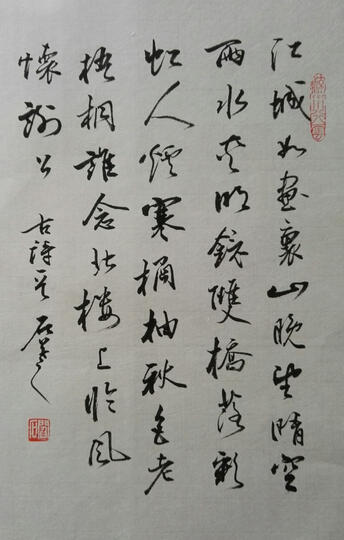 江城如畫裏山晚望晴空
兩水夾明鏡雙橋落彩
虹人煙寒橘柚秋色老
梧桐誰念北樓上臨風
懷謝公
古詩